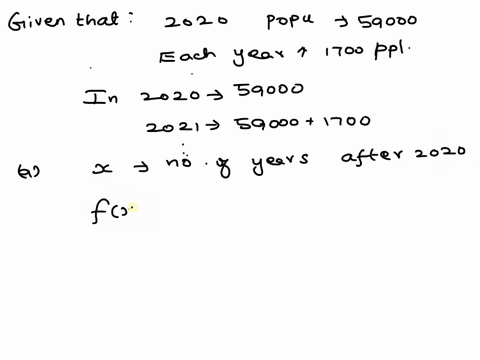 Given that: 2020 popu → 59000
Each year ↑ 1700 ppl.
In 2020 → 59000
2021 → 59000 + 1700
(a) x → no. of years after 2020
f(x